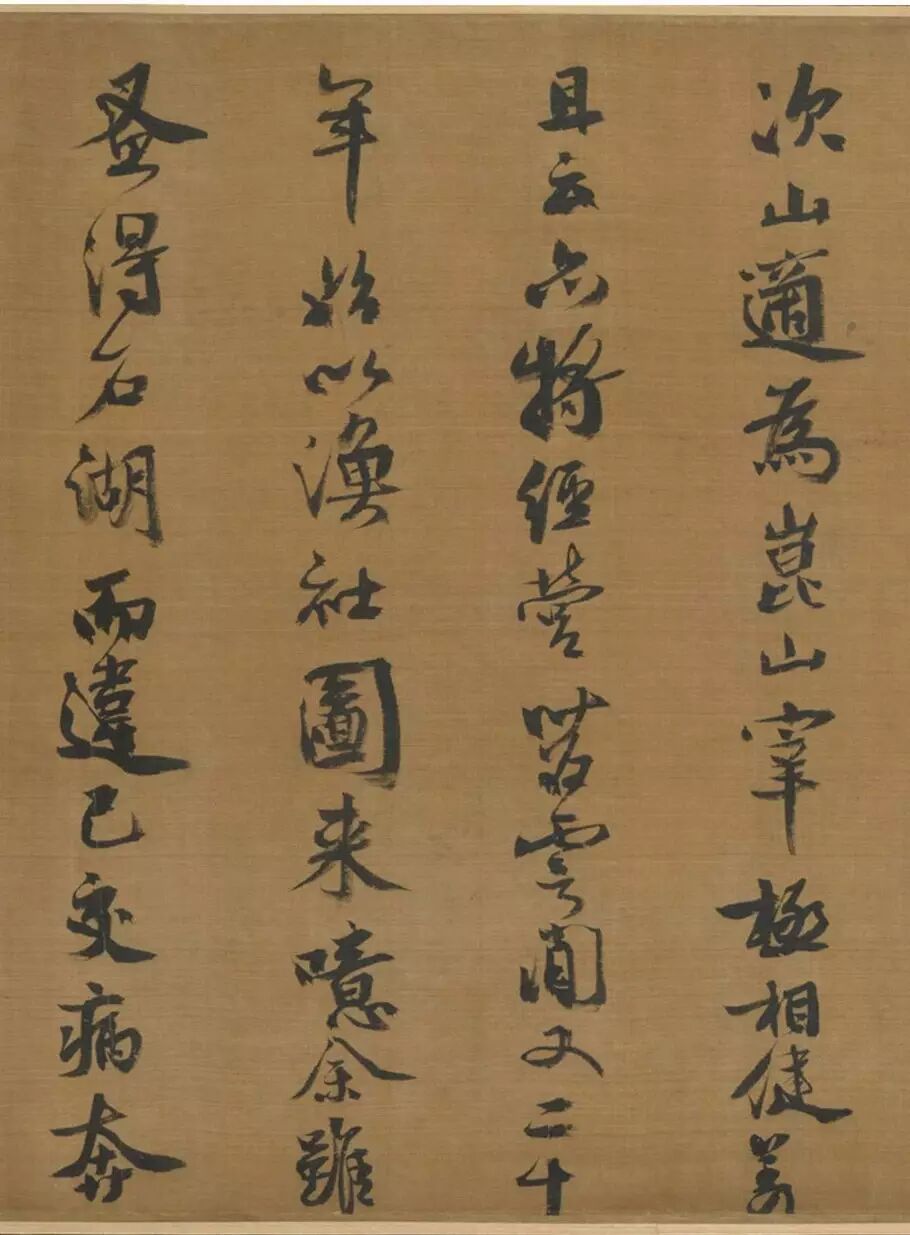 次山適為崑山宰極相健羨
且云亦將經營苕霅間又二十
年始以漁社圖来噫余雖
蚤得石湖而違己交病奔